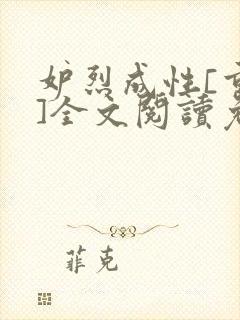 妒烈成性[
]全文閱讀
菲克